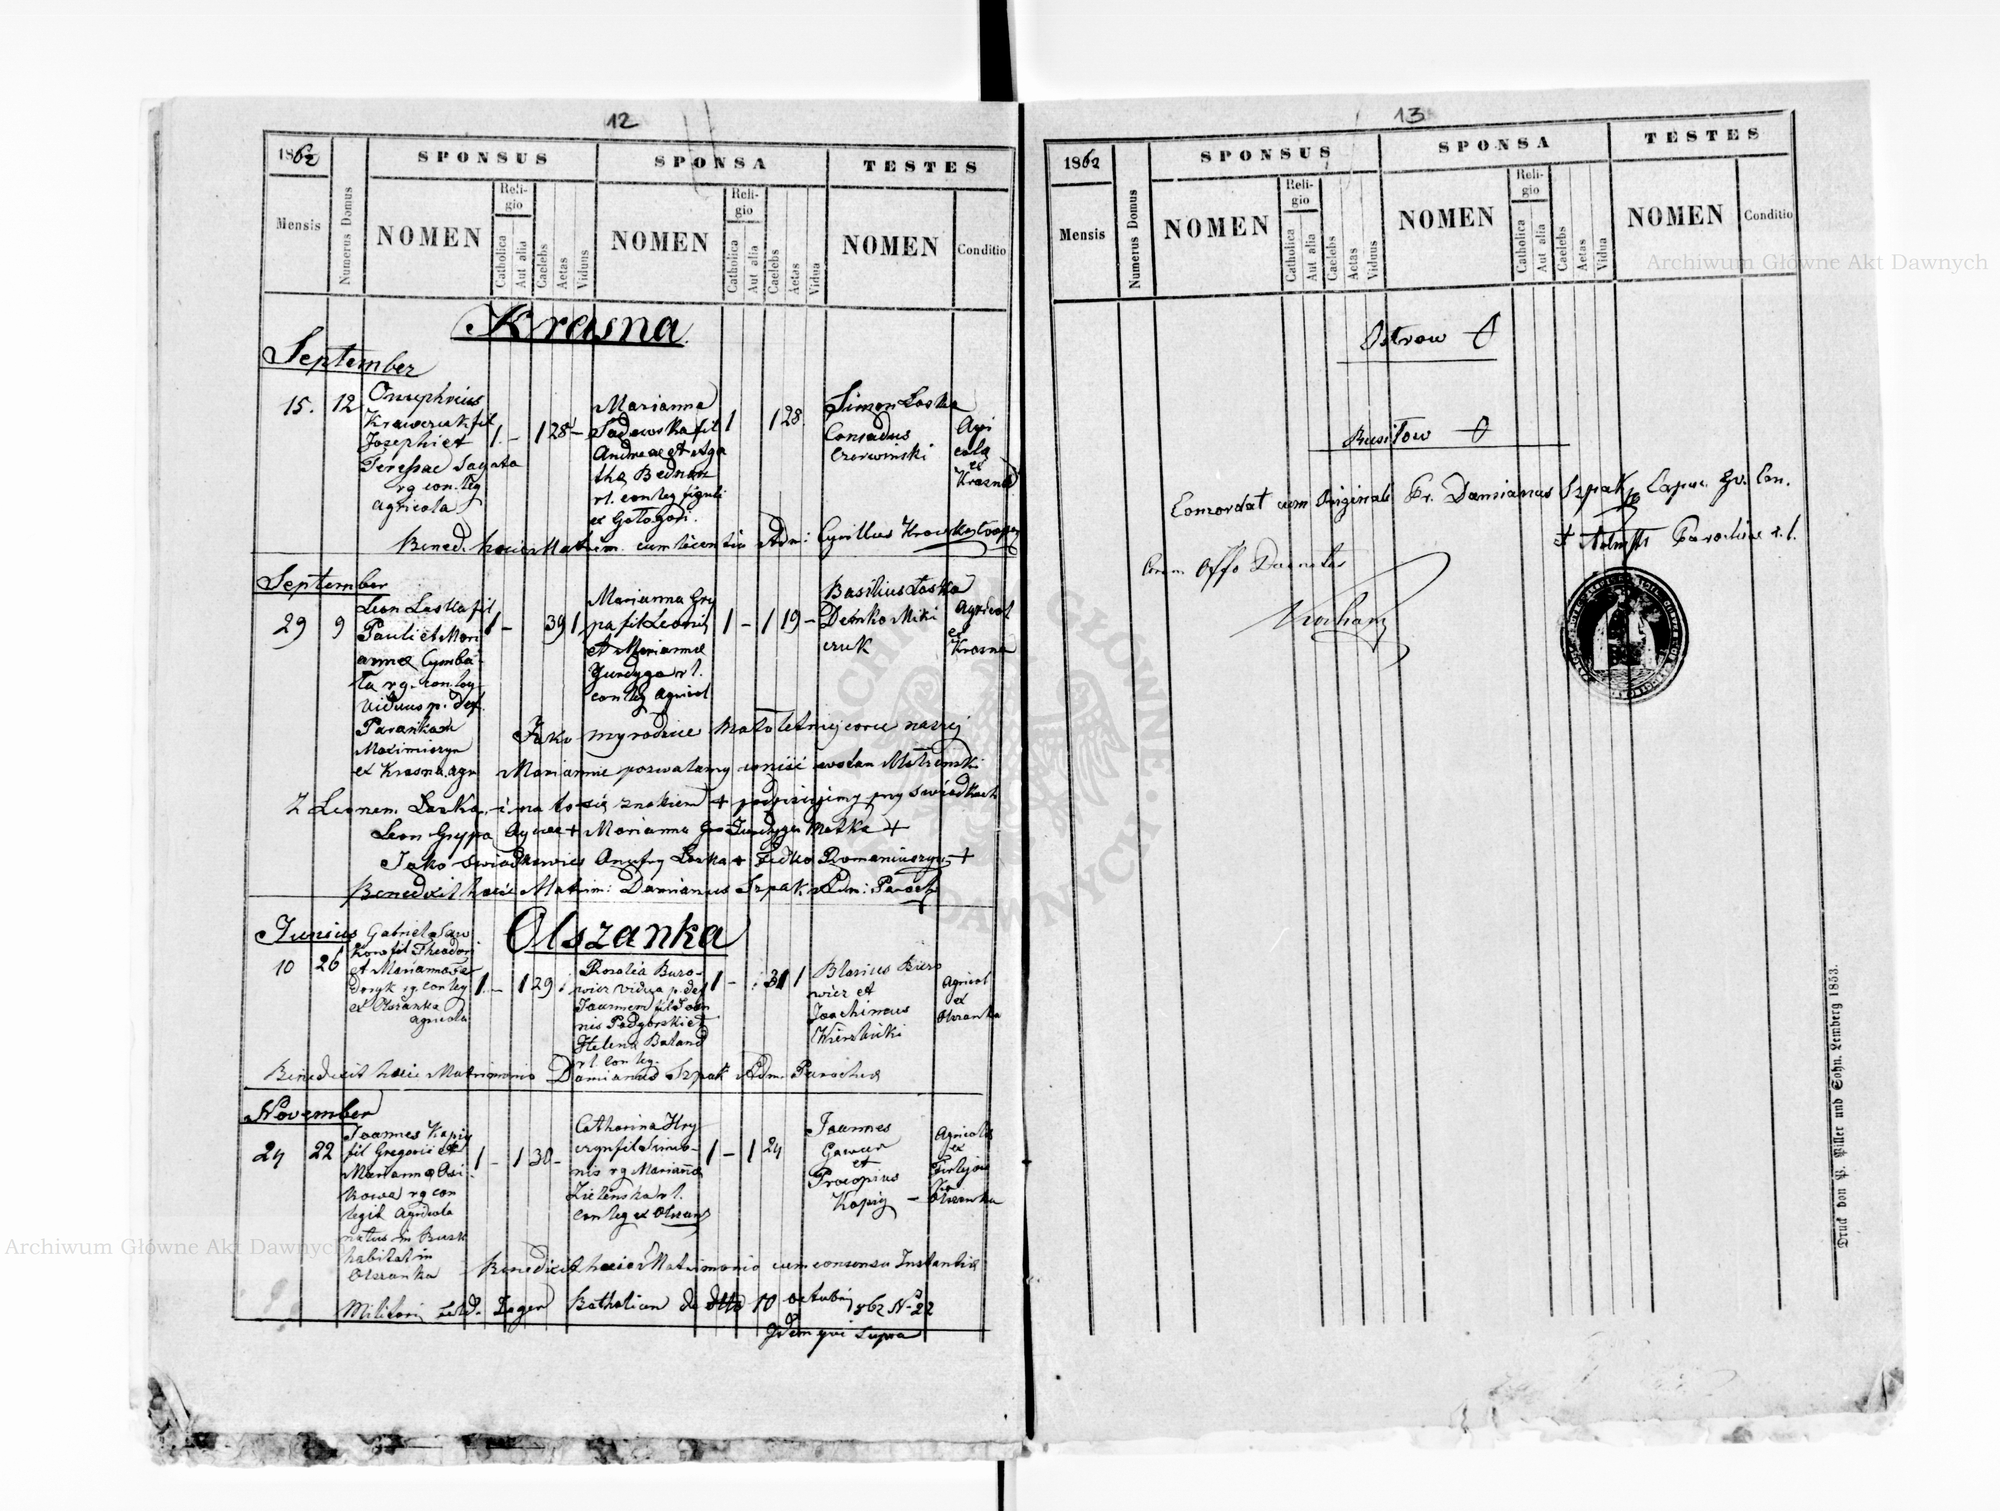 12
1862
SPONSUS
SPONSA
TESTES
Mensis
Numerus Domus
NOMEN
Religio
Catholica
Aut alia
Caelebs
Aetas
Viduus
NOMEN
Religio
Catholica
Aut alia
Caelebs
Aetas
Vidua
NOMEN
Conditio
Krasna
September
15. 12
Onuphrius
Krawczuk fil
Josephi et
Teressae Sagata
rg con. leg
agricola
1 - 1 28 -
Marianna
Sadowska fil
Andreae et Aga
tha Bednarz
rl. con leg figuli
ex Gołogóri.
1 1 28
Simon Laska
Conradus
Czerwinski
Agri
cola
ex
Krasne
Bened. haec Matrim. cum licentia Adm: Cyrillus
September
29 9
Leon Laska fil
Pauli et Mari
anna Cymba
ła rg. con. leg
viduus p. def.
Parańka
Maximiszyn
ex Krasna agr
1 - 39 1
Marianna Gry
pa fil Leonis
et Marianna
Jundyga rl.
con leg Agricol
1 - 1 19 -
Basilius Laska
Demko Miki
czuk
Agricol
ex
Krasna
Jako my rodzice małoletniej córce naszej
Mariannie pozwalamy wnijść w stan Małżeński
z Leonem Laska, i na to się znakiem + podpisujemy przy świadkach
Leon Grypa Ojciec + Marianna Jundyga Matka +
Jako świadkowie Onufry Laska + Fedko Romaniuszyn +
Benedixit haec Matrim: Damianus Szpak Adm: Paroch
Olszanka
Junius
10 26
Gabriel Saw
kow fil Theodori
et Marianna
rg. con leg
ex Olszanka
agricola
1 - 1 29
Rosalia Buro-
wicz vidua p. def
Joannem fil Joan
nis Podgorski et
Helena Baland
rl. con leg.
1 - 31 1
Blasius Biero
wicz et
Joachimus
Wierzbicki
Agricol
ex
Olszanka
Benedixit haec Matrimonio Damianus Szpak Adm. Parochus
November
24 22
Joannes Kopij
fil Gregorii et
Marianna Osi-
kowa rg con
legit Agricola
natus in Busk
habitat in
Olszanka
1 - 1 30 -
Catharina Hry
czyn fil Simeo-
nis rg Marianna
Zielenska rl.
con leg ex Olszan
1 - 1 24
Joannes
Gawur
et
Procopius
Kopij -
Agricolae
ex
Firlejow
Olszanka
Benedixit haec Matrimonio cum consensu Instantia
Militari Jager Bathalion de dtto 10 octobri 862 N 22
Idem qui supra
13
1862
SPONSUS
SPONSA
TESTES
Mensis
Numerus Domus
NOMEN
Religio
Catholica
Aut alia
Caelebs
Aetas
Viduus
NOMEN
Religio
Catholica
Aut alia
Caelebs
Aetas
Vidua
NOMEN
Conditio
Ostrow
Concordat cum Originali Fr. Damianus Szpak
Parochiae r. l.
Druck von P. Piller und Sohn, Lemberg 1853.
Archiwum Główne Akt Dawnych
Archiwum Główne Akt Dawnych
ARCHIWUM GŁÓWNE AKT DAWNYCH